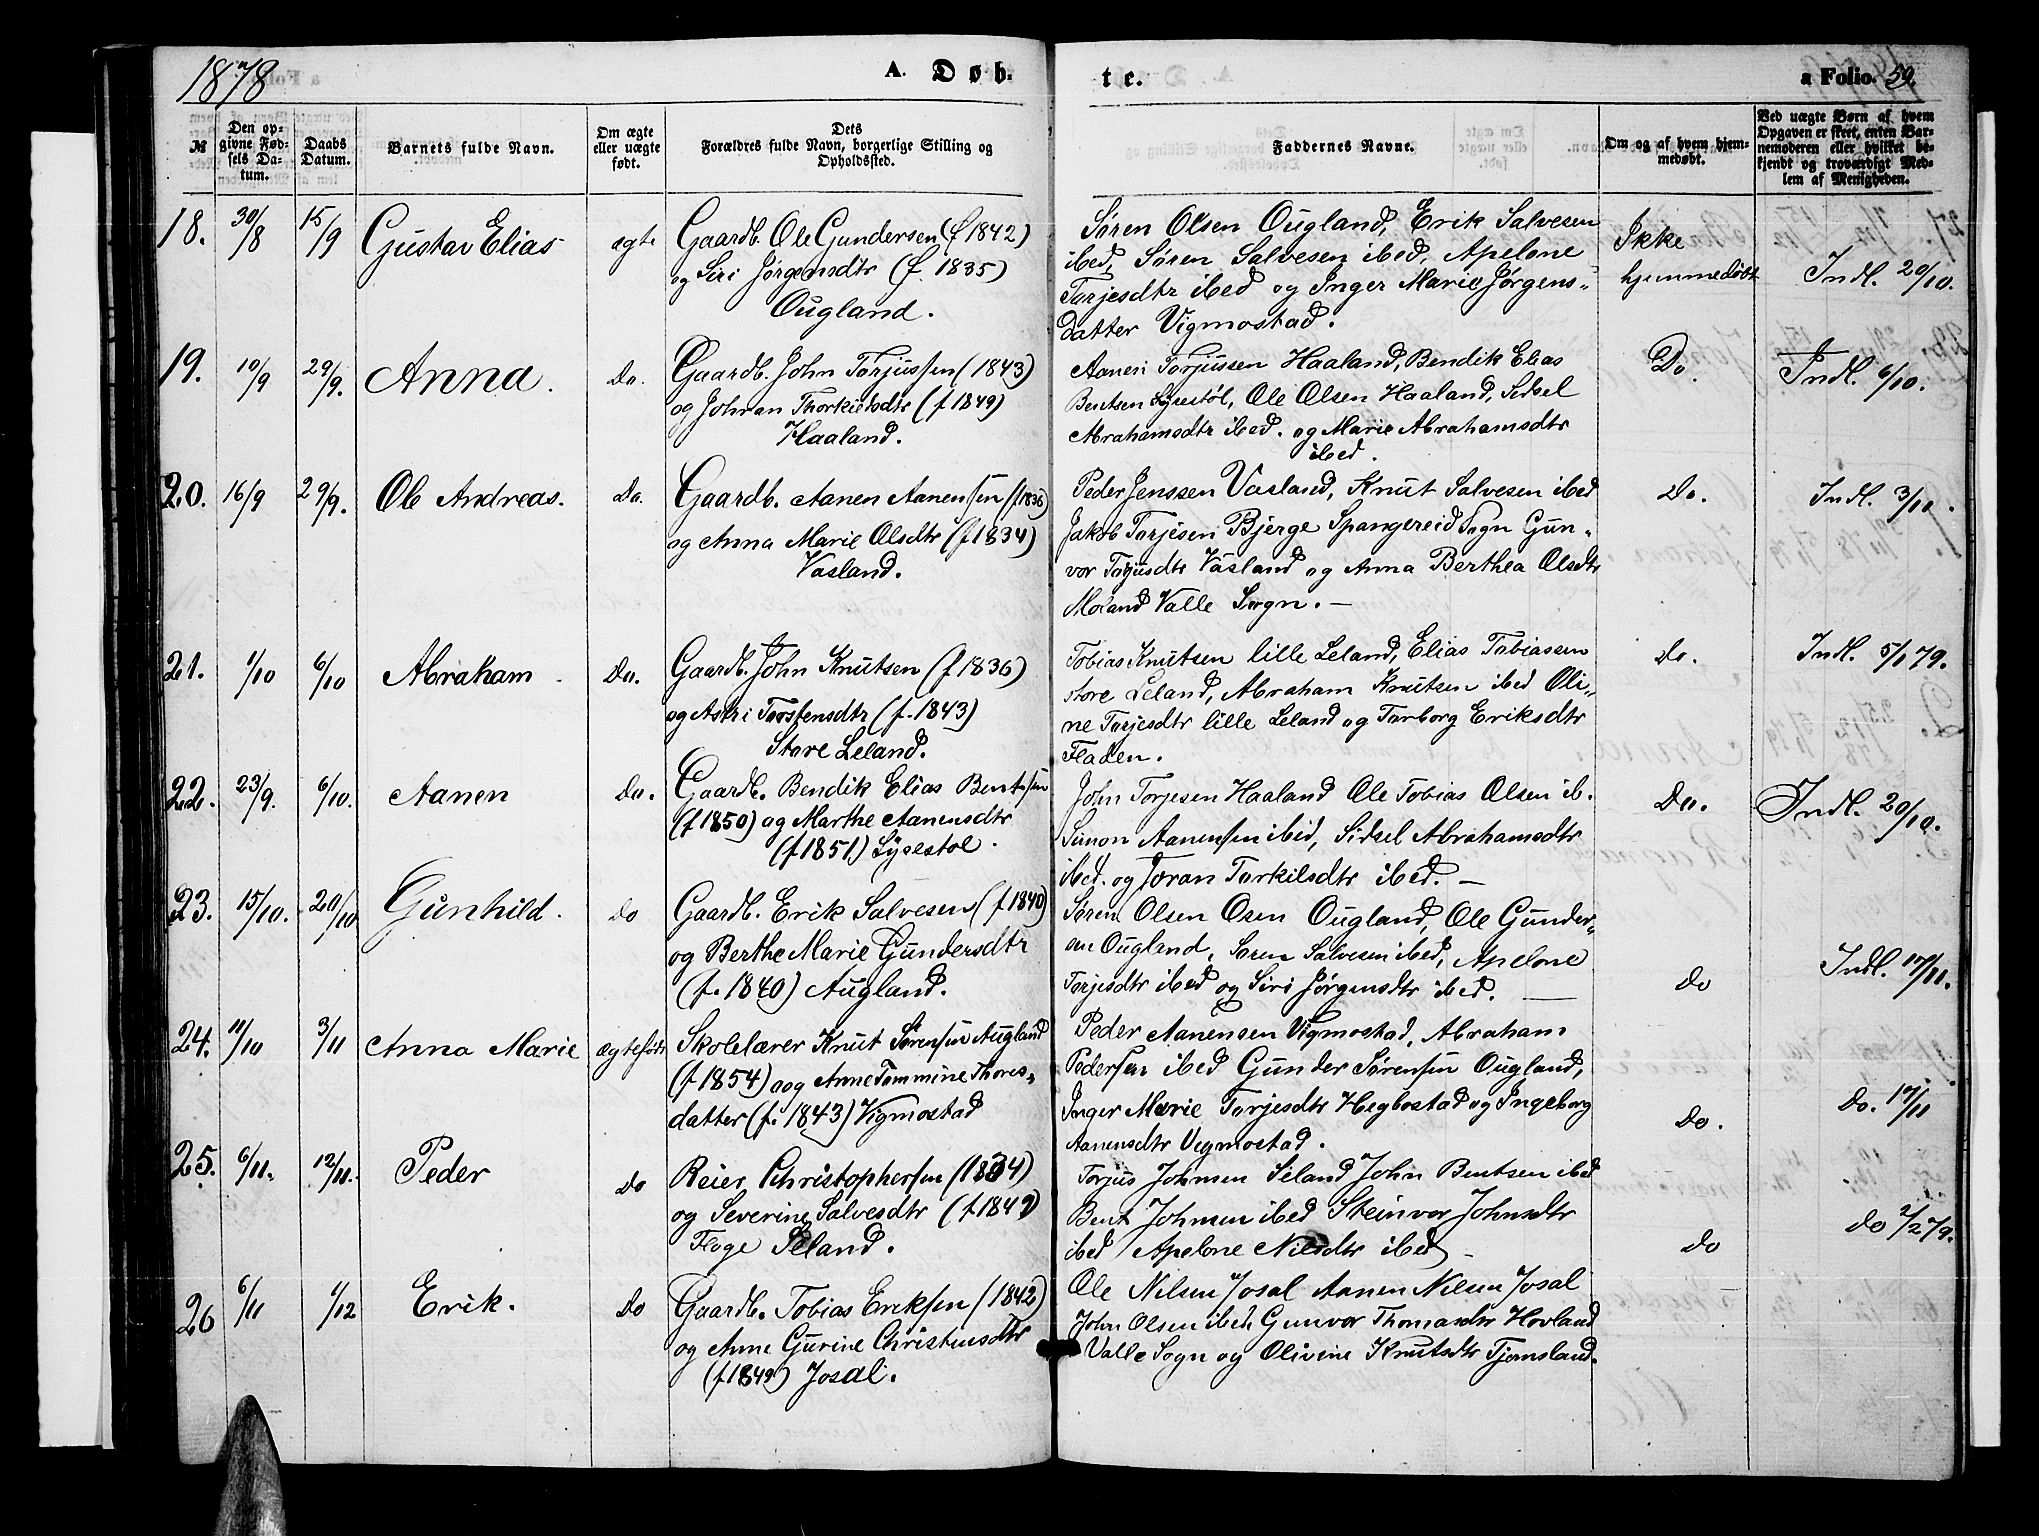 1878
A. Døb-
te.
a Folio. 59.
№
Den op-
givne Fød-
sels Da-
tum.
Daabs
Datum.
Barnets fulde Navn.
Om ægte
eller uægte
født.
Dets
Forældres fulde Navn, borgerlige Stilling og
Opholdssted.
Faddernes Navne.
Om og af hvem hjem-
medøbt.
Ved uægte Børn af hvem
Opgaven er skeet, enten Bar-
nemoderen eller hvilket be-
kjendt og troværdigt Med-
lem af Menigheden.
18. 30/8 15/9 Gustav Elias ægte
Gaardb. Ole Gundersen (f 1842)
og Siri Jørgensdtr (f. 1835)
Ougland.
Søren Olsen Ougland, Erik Salvesen
ibed, Søren Salvesen ibed, Apelone
Torjesdtr ibed og Inger Marie Jørgens-
datter Vigmostad.
Ikke
hjemmedøbt
Indl. 20/10.
19. 10/9 29/9. Anna. Do.
Gaardb. John Torjussen (1843)
og Johran Thorkildsdtr (f 1849)
Haaland.
Aanen Torjussen Haaland, Bendik Elias
Bentsen Lysestøl, Ole Olsen Haaland, Sidsel
Abrahamsdtr ibed. og Marie Abrahamsdtr
ibed.
Do.
Indl. 6/10.
20. 16/9 29/9. Ole Andreas. Do.
Gaardb. Aanen Aanensen (f 1836)
og Anna Marie Olsdtr (f 1834)
Vasland.
Peder Jenssen Vasland, Knut Salvesen ibed
Jakob Torjesen Bjerge Spangereid Sogn Gun-
vor Torjusdtr Vasland og Anna Berthea Olsdtr
Moland Valle Sogn. —
Do.
Indl. 3/11.
21. 1/10 6/10 Abraham Do.
Gaardb. John Knutsen (f 1836)
og Astri Torstensdtr (f. 1843)
Store Leland.
Tobias Knutsen lille Leland, Elias Tobiasen
store Leland, Abraham Knutsen ibed Oli-
ne Torjesdtr lille Leland og Torborg Eriksdtr
Fladen.
Do.
Indl. 5/1 79.
22. 23/9. 6/10. Aanen Do.
Gaardb. Bendik Elias Bentsen
(f 1850) og Marthe Aanensdtr
(f 1851) Lysestøl.
John Torjesen Haaland Ole Tobias Olsen ib.
Simon Aanensen ibid, Sidsel Abrahamsdtr
ibed. og Joran Torkilsdtr ibed. —
Do.
Indl. 20/10.
23. 15/10. 20/10 Gunhild. do
Gaardb. Erik Salvesen (f 1840)
og Berthe Marie Gundersdtr
(f. 1840) Augland.
Søren Olsen Osen Ougland, Ole Gunder-
sen Ougland, Søren Salvesen ibed, Apelone
Torjesdtr ibed og Siri Jørgensdtr ibed. —
do
Indl. 17/11.
24. 11/10 3/11 Anna Marie ægtefødt
Skolelærer Knut Sørensen Augland
(f 1854) og Anne Tommine Thores-
datter (f. 1843) Vigmostad
Peder Aanensen Vigmostad, Abraham
Pedersen ibed Gunder Sørensen Ougland,
Inger Marie Torjesdtr Hegbostad og Ingeborg
Aanensdtr Vigmostad.
do.
do. 17/11
25. 6/11. 12/11. Peder do
Reier Christophersen (1834)
og Severine Salvesdtr (f 1847)
Floge Seland.
Torjus Johnsen Seland John Bentsen ibed
Bent Johnsen ibed Steinvor Johnsdtr
ibed Apelone Nilsdtr ibed —
do
do 2/2 79.
26 6/11 1/12 Erik. do
Gaardb. Tobias Eriksen (1842)
og Anne Gurine Christensdtr
(f 1849) Josdal.
Ole Nilsen Josal Aanen Nilsen Josal
John Olsen ibed, Gunvor Thomasdtr Hovland
Valle Sogn og Olivine Knutsdtr Tjomsland.